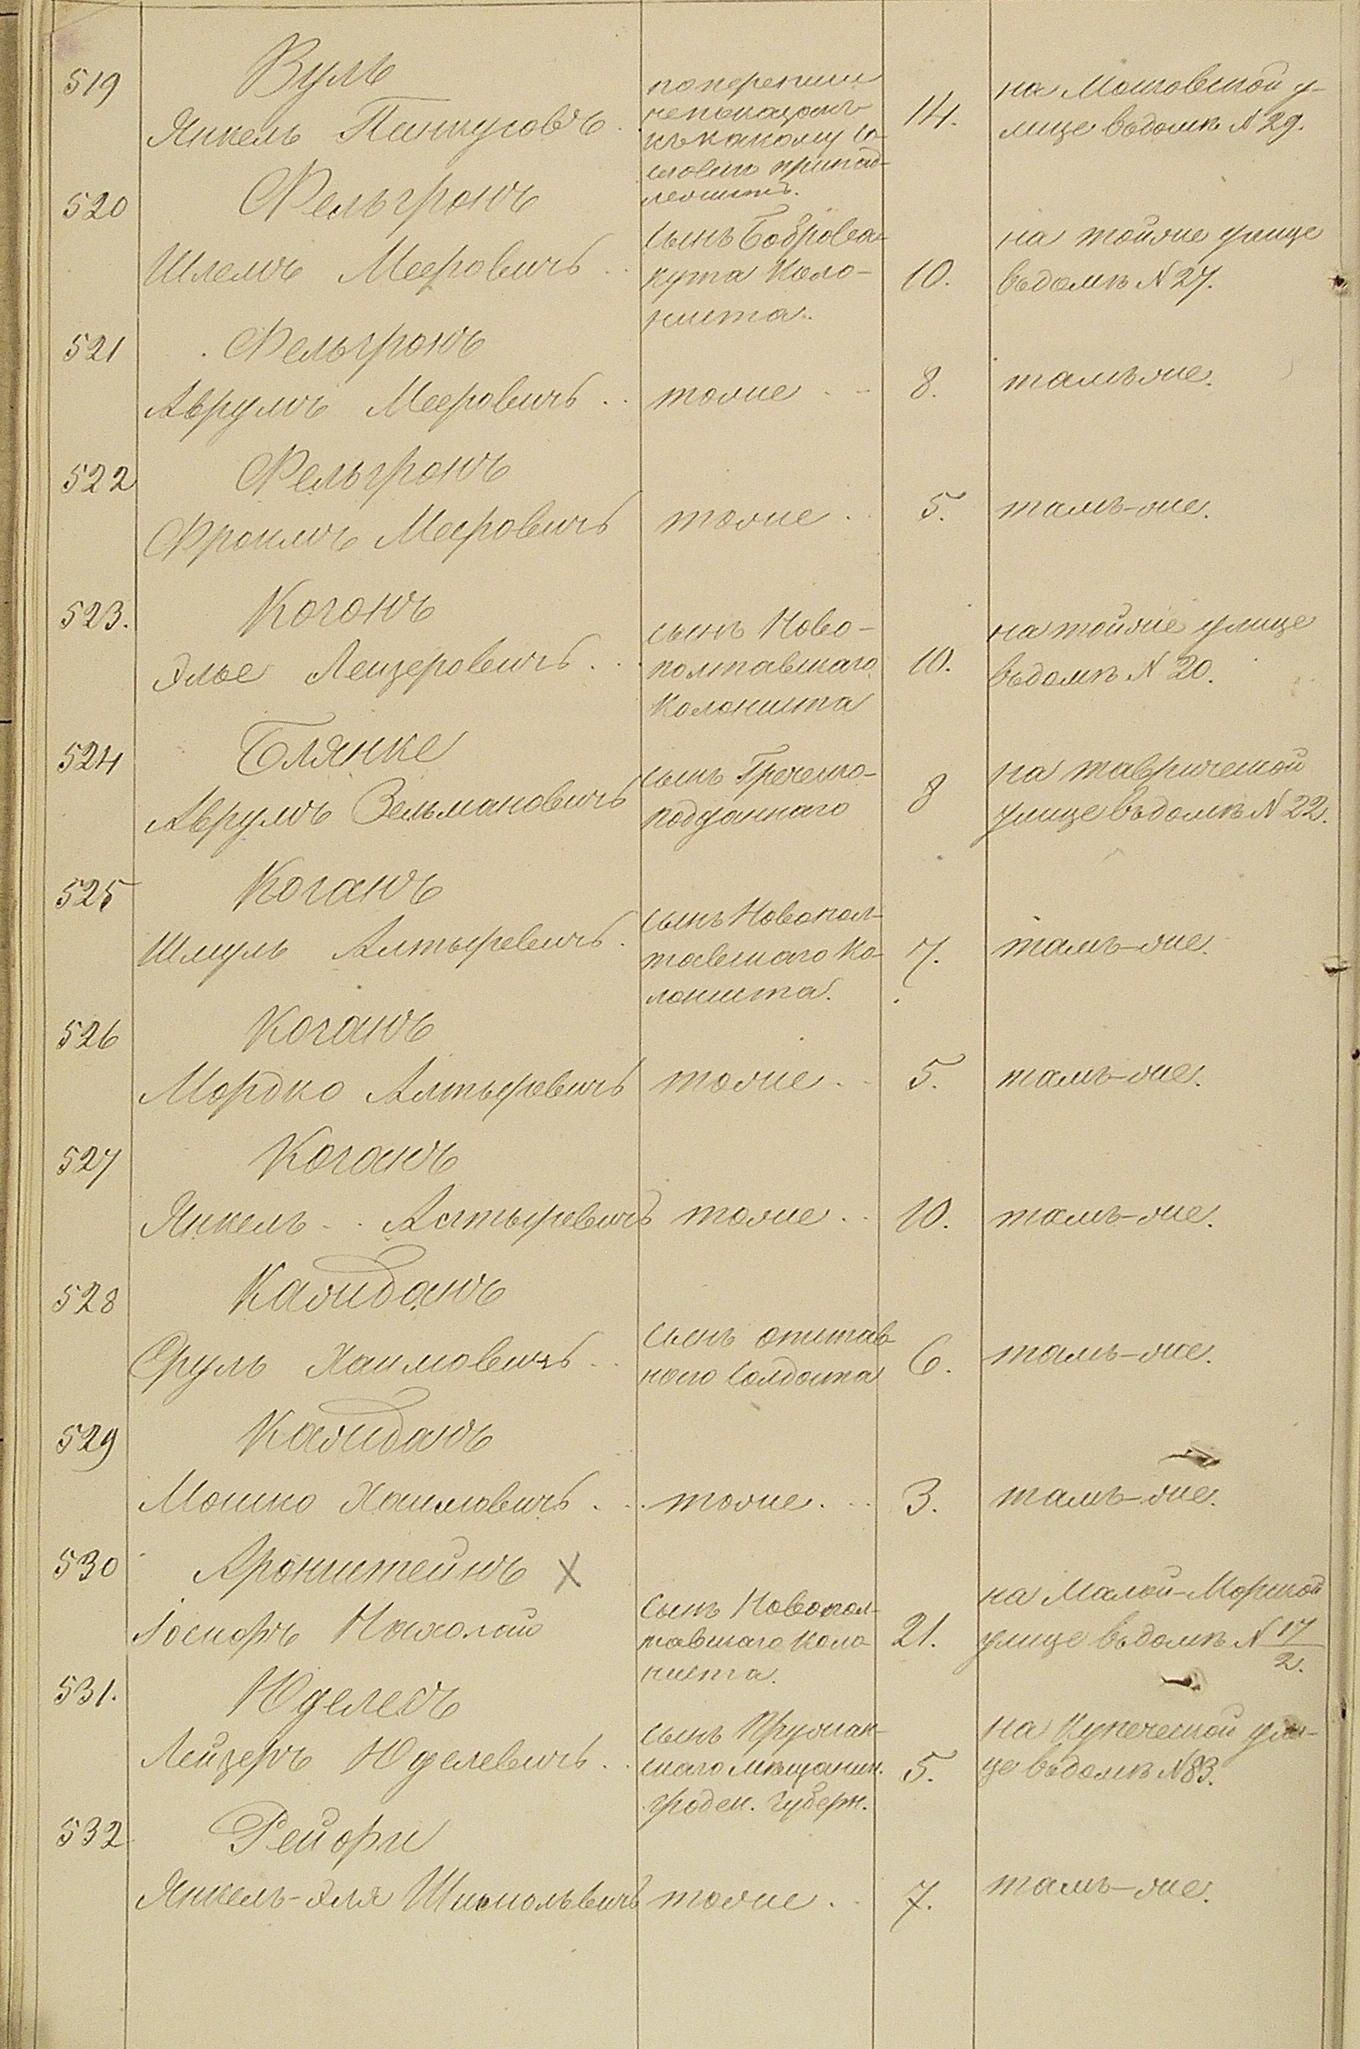 519
Вуль
Янкель Пинкусовъ
по переписи
непоказанъ
къ какому со-
словію принад-
лежитъ.
14.
на Московской у-
лице въ домѣ N 29.
520
Фельгронъ
Шлемъ Мееровичъ
сынъ Бобровъ-
кута Коло-
ниста.
10.
на тойже улице
въ домѣ N 27.
521
Фельгронъ
Аврумъ Мееровичъ
тоже
8.
тамъ же.
522
Фельгронъ
Фроимъ Мееровичъ
тоже
5.
тамъ-же.
523.
Коганъ
Элье Лейзеровичъ
сынъ Ново-
полтавскаго
Колониста
10.
на тойже улице
въ домѣ N 20.
524
Блянке
Аврумъ Зельмановичъ
сынъ Греческо-
подданнаго
8
на таврической
улице въ домѣ N 22.
525
Коганъ
Шмуль Алтыревичъ
сынъ Новопол-
тавскаго Ко-
лониста.
7.
тамъ-же.
526
Коганъ
Мордко Алтыревичъ
тоже
5.
тамъ-же.
527
Коганъ
Янкель Алтыревичъ
тоже
10.
тамъ-же.
528
Кажданъ
Сруль Хаимовичъ
сынъ отстав
наго Солдата
6.
тамъ-же.
529
Кажданъ
Мошко Хаимовичъ
тоже
3.
тамъ-же.
530
Аронштейнъ X
Іосифъ
сынъ Новопол-
тавскаго Коло
ниста.
21.
на Малой-Морской
улице въ домѣ N 17/2.
531.
Юделевъ
Лейзеръ Юделевичъ
сынъ Пружан-
скаго мѣщанин.
Гроден. Губерн.
5.
на Купеческой ули-
це въ домѣ N 83.
532
Янкель-Эля
тоже
7.
тамъ-же.